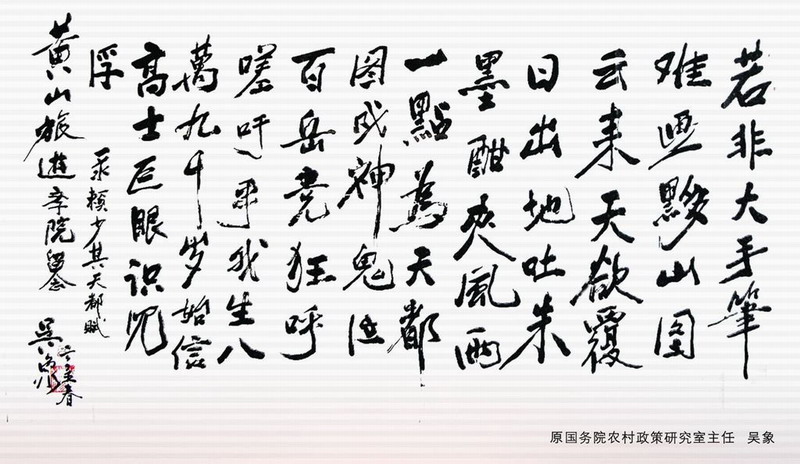 若非大手筆
难画黟山图
云来天欲覆
日出地吐朱
墨酣夾風雨
一點為天都
图成神鬼泣
百岳竞狂呼
嗟吁乎我生八
萬九千岁始信
高士巨眼识
浮
录赖少其天都赋
黄山旅遊学院留念
吴象
春
原国务院农村政策研究室主任 吴象